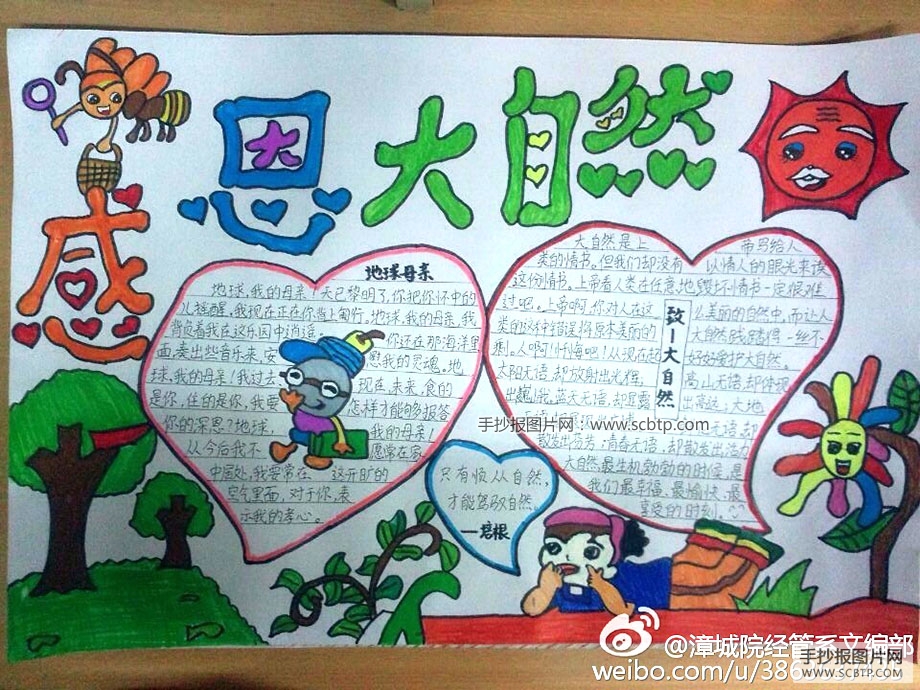 感恩大自然
地球母亲
地球,我的母亲!天已黎明了,你把你怀中的
儿摇醒,我现正在你背上匍行。地球,我的母亲,我
背负着我在这乐园中逍遥。 你还在那海洋里
面,奏出些音乐来,安 慰我的灵魂。地
球,我的母亲!我过去 现在,未来,食的
是你,住的是你,我要 怎样才能够报答
你的深恩?地球, 我的母亲!
从今后我不 愿常在家
中居处,我要常在 这开旷的
空气里面,对于你,表
示我的孝心。
只有顺从自然,
才能驾驭自然。
—培根
致—大自然
大自然是上 帝写给人
类的情书。但我们却没有 以情人的眼光来读
这份情书。上帝看人类在任意地毁坏情书一定很难
过吧。上帝啊,你对人在这 么美丽的自然中,而让人
类的这种错误将原本美丽的 大自然践踏得一丝不
剩。人啊!忏悔吧!从现在起 好好爱护大自然。
太阳无语,却放射出光辉, 高山无语,却体现
出巍峨,蓝天无语,却 出高远;大地
却散发出芬芳,青春无语,却散发出活力
大自然最生机勃勃的时候,是
我们最幸福、最愉快、最
享受的时刻。
手抄报图片网:www.scbtp.com
@漳城院经管系文编部
weibo.com/u/386
手抄报图片网
WWW.SCBTP.COM